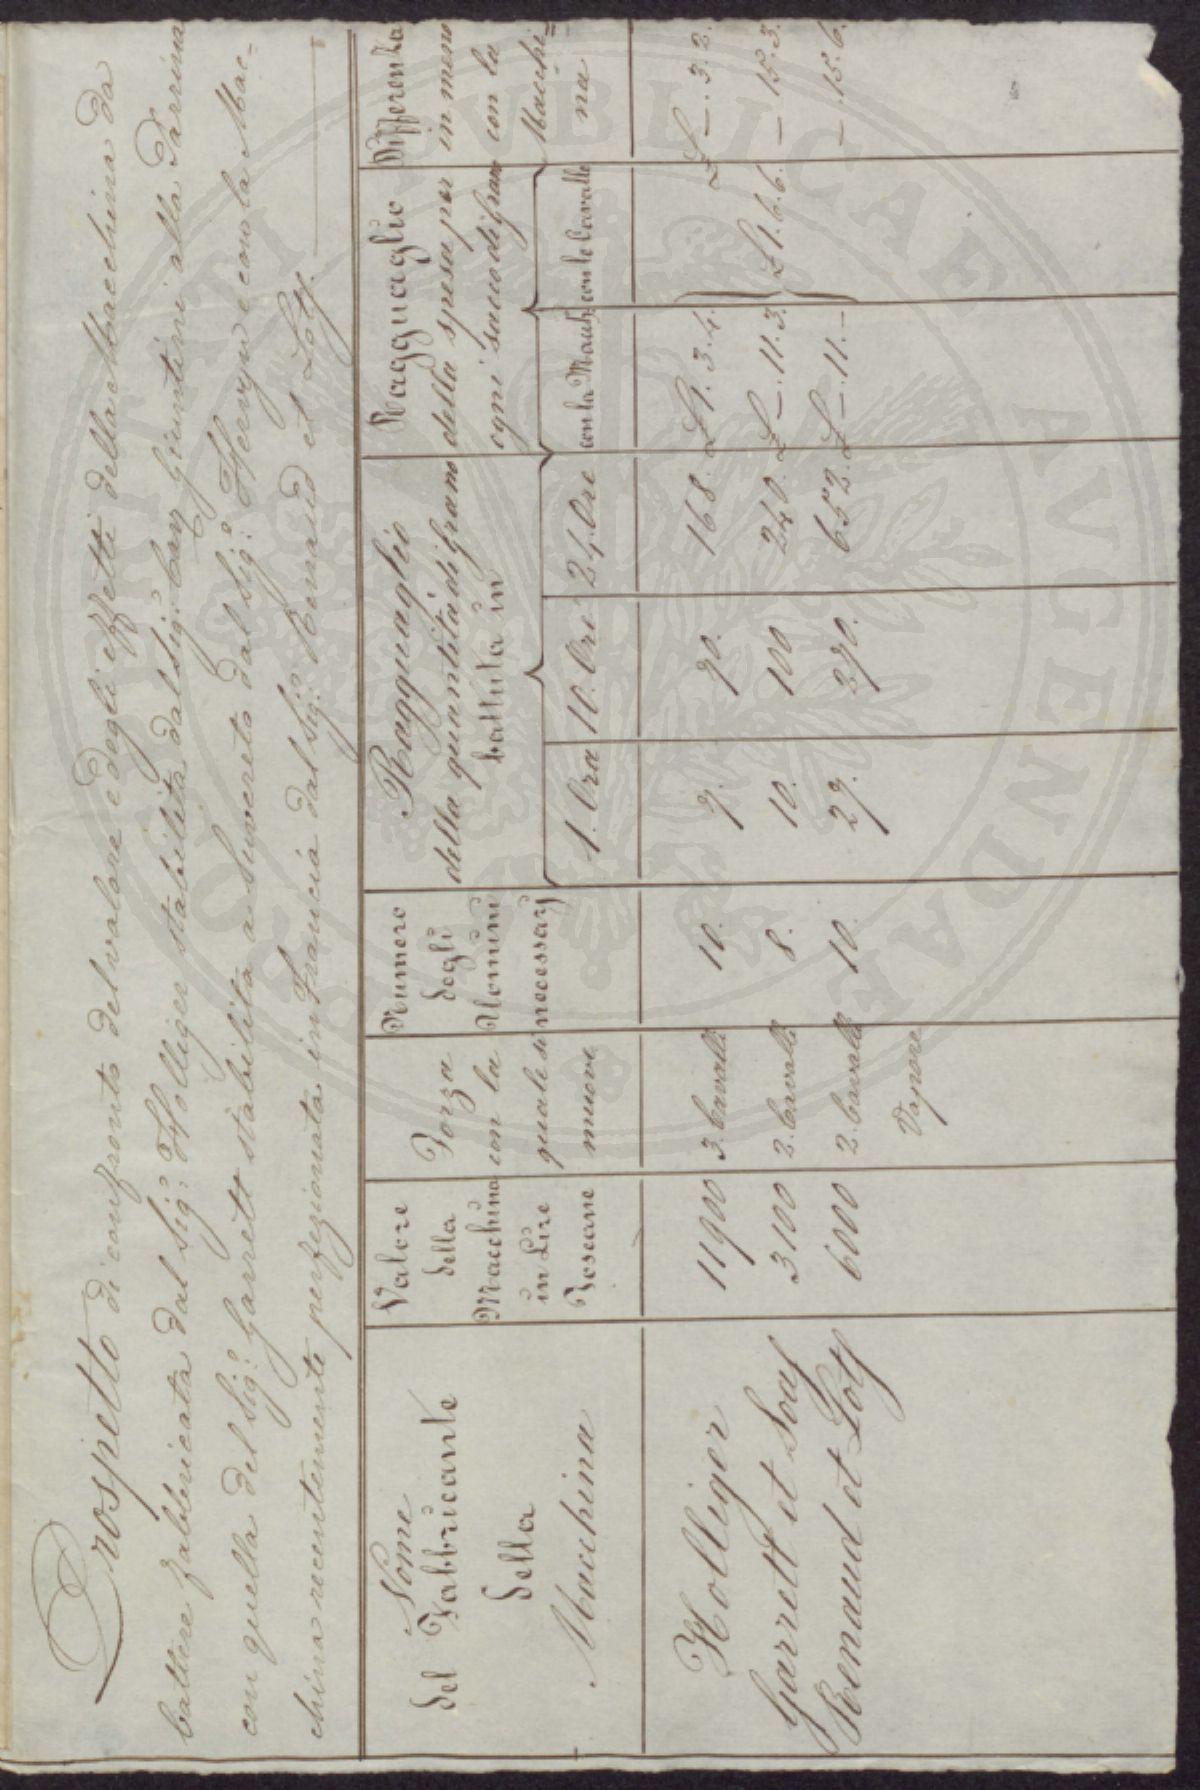 Prospetto di confronto del valore e degli effetti della Macchina da
battere fabbricata dal Sig: Holliger stabilita dal Sig: Cav: Giuntini alla Farrina
con quella del Sig: Garrett stabilita a Suvereto dal Sig: Hervyn e con la Mac=
china recentemente perfezionata in Francia dal Sig: Renaud et Lotz.
Nome
del Fabbricante
della
Macchina
Valore
della
Macchina
in Lire
Toscane
Forza
con la
quale si
muove
Numero
degli
Uomini
necessarj
Ragguaglio
della quantità di grano
battuta in
1. Ora 10. Ore 24. Ore
Ragguaglio
della spesa per
ogni sacco di grano
con la Macch: con le Cavalle
Differenza
in meno
con la
Macchi=
na
Holliger 11900 3. Cavalli 10. 9. 90. 168. £1. 3. 4. £ —. 3. 2.
Garrett et Soaf 3100 2. Cavalli 8. 10. 100 240. £ —. 11. 3. £1. 6. 6. —. 15. 3.
Renaud et Lotz 6000 2. Cavalli 10. 29. 290. 652. £ —. 11. — —. 15. 6.
Vapore
SPQR OPTIMATI PUBLICAE AUGENDAE